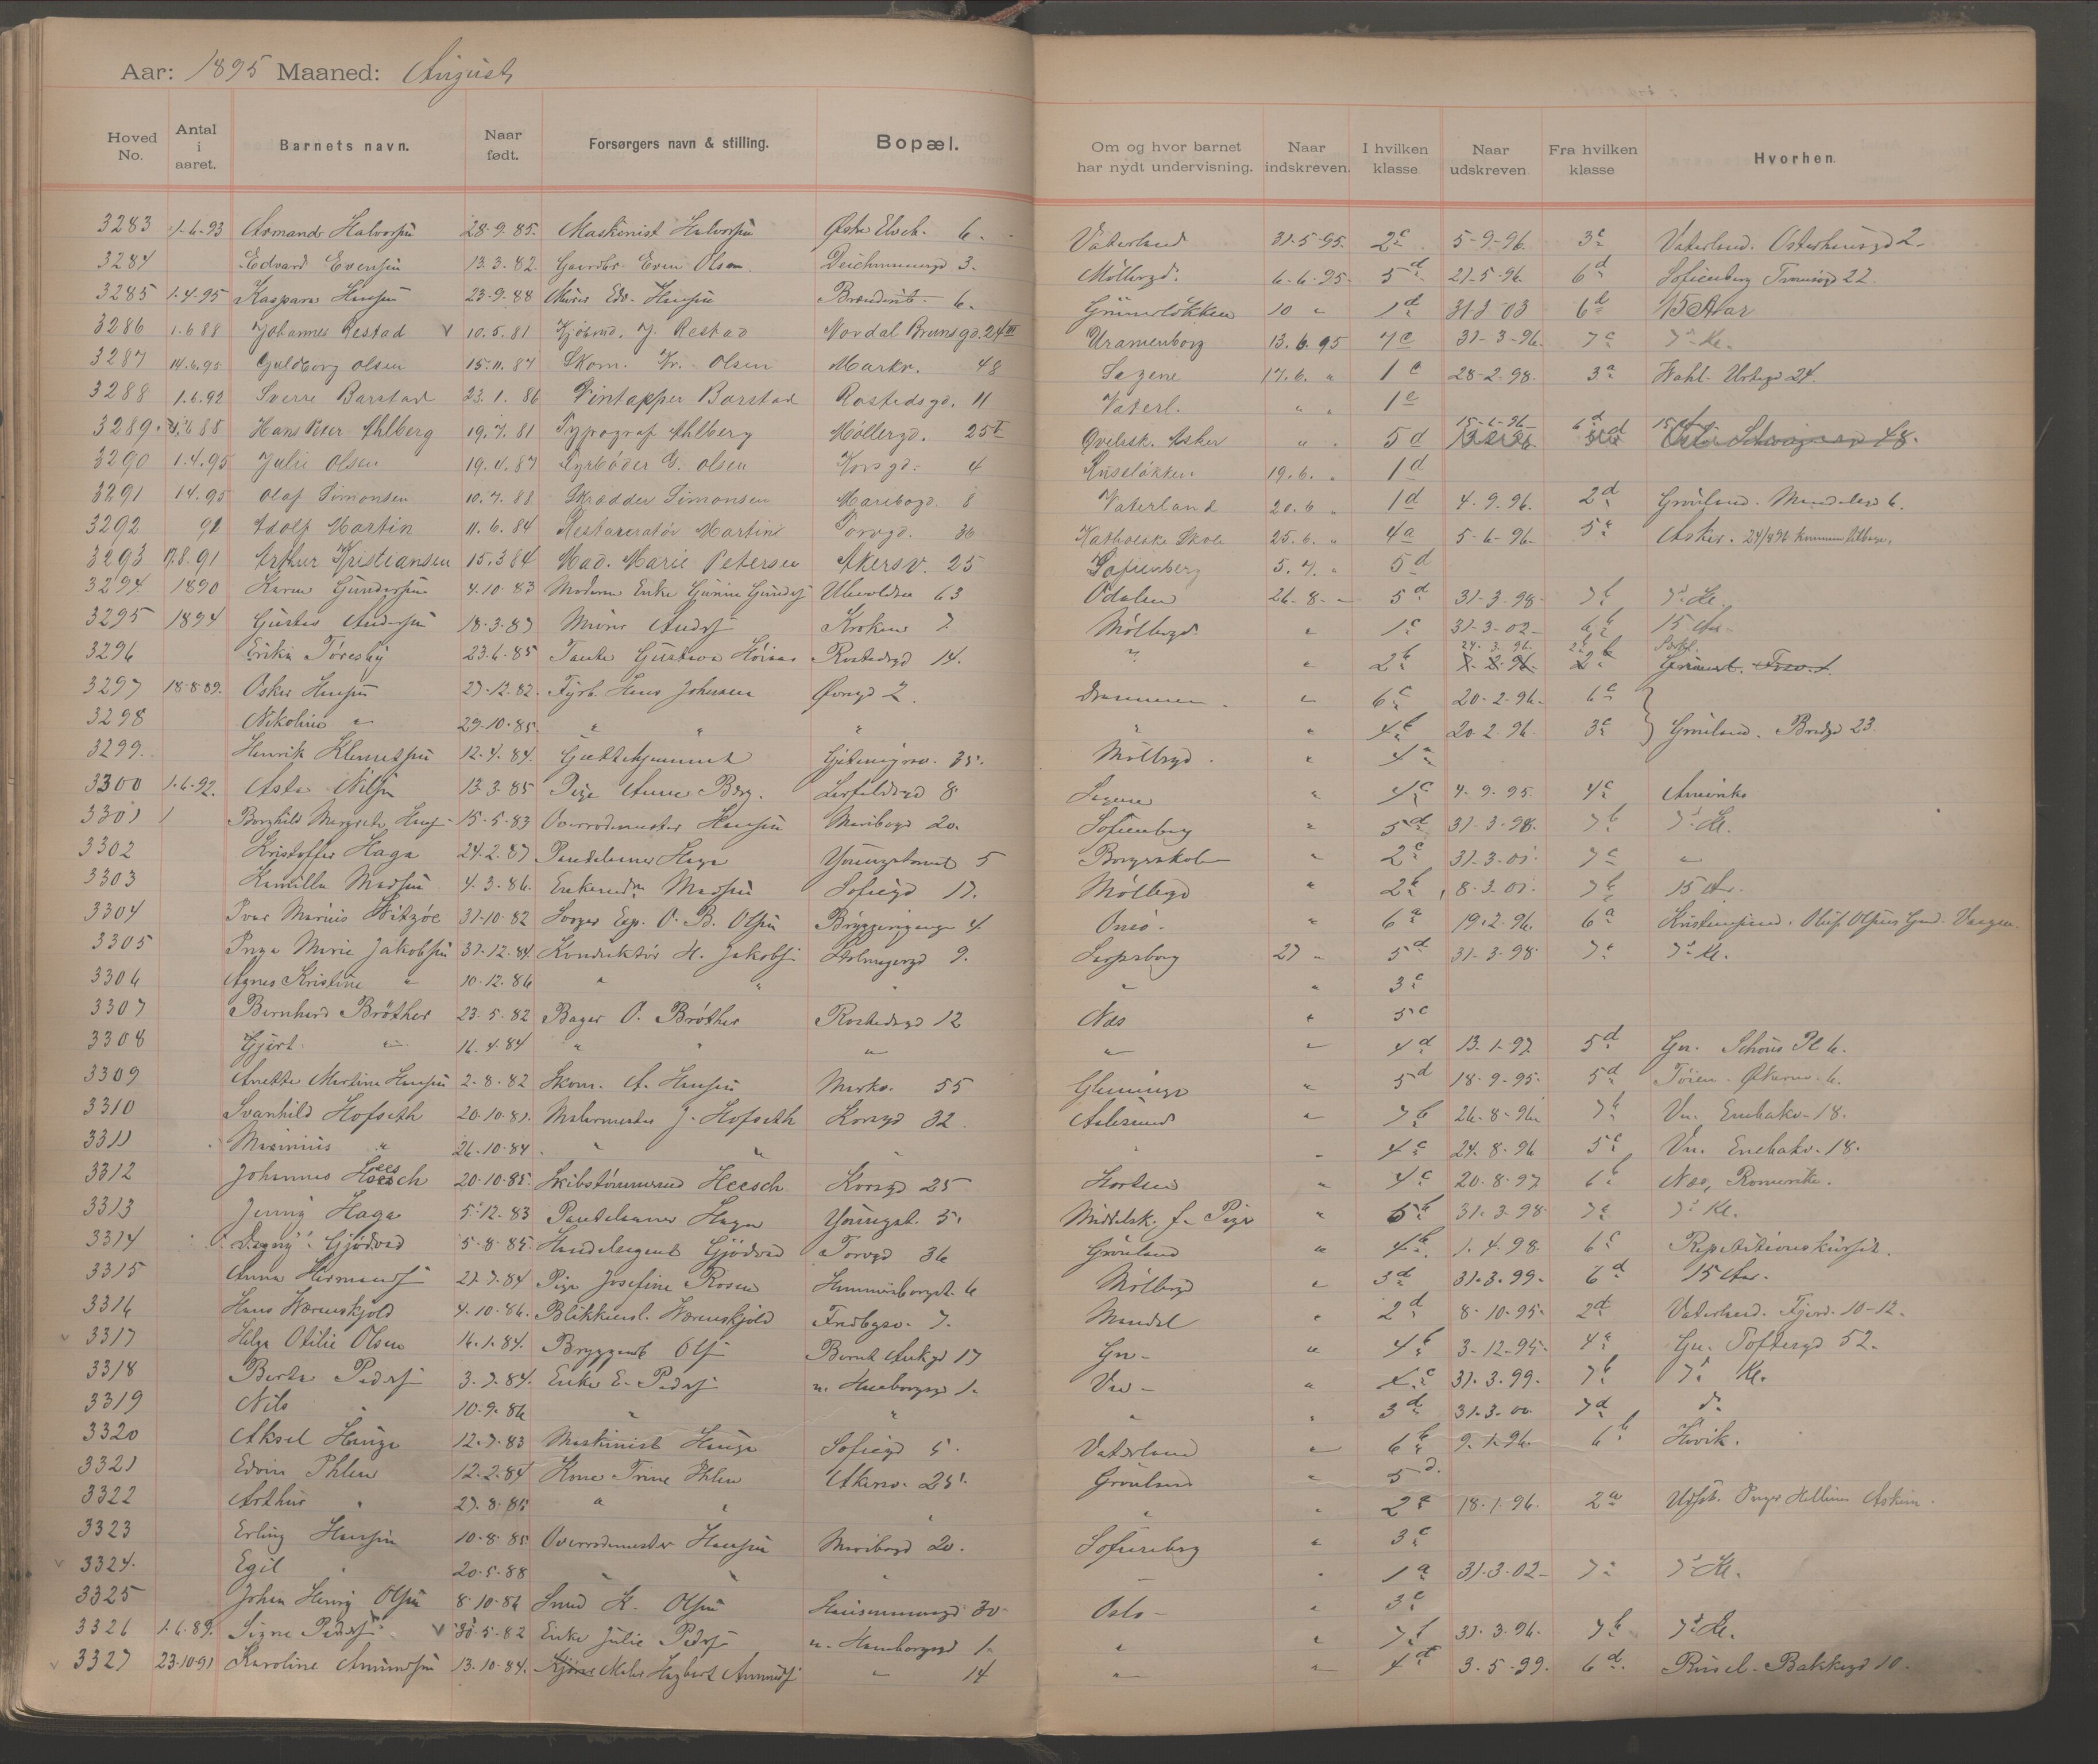 Aar: 1895 Maaned: August
Hoved No. Antal i aaret. Barnets navn. Naar født. Forsørgers navn & stilling. Bopæl. Om og hvor barnet har nydt undervisning. Naar indskreven. I hvilken klasse Naar udskreven Fra hvilken klasse Hvorhen.
3283 1-6-93 Armand Halvorsen 28-9-85. Maskinist Halvorsen Østre Elvek. 6. Vaterland 31-5-95. 2c 5-9-96. 3c Vaterland. Osterhausgd 2.
3284 Edvard Evensen 13.3.82. Gaardbr. Even Olsen Deichmansgd 3. Møllergd. 6-6-95. 5d 21-5-96. 6d Sofienberg Tromsøgd 22
3285 1.4.95 Kaspara Hansen 23-9-88 Murer Edv. Hansen 6. Grünerløkken 10 " 1d 31-1-03 6d 15 Aar
3286 1.6.88 Johannes Restad V 10.5.81 Kjøbmd. J. Restad Nordal Brunsgd. 24 III Uranienborg 13.6.95 7c 31-3-96. 7c 7de Kl.
3287 14.6.95 Guldborg Olsen 15.11.87 Skom. Kr. Olsen Markv. 48 Sagene 17.6. " 1c 28-2-98. 3a Wahl. Urtegd 24.
3288 1.6.92 Sverre Barstad 23.1.86 Vintapper Barstad Rostedsgd. 11 Vaterl. " " 1c
3289 Hans Peter Ahlberg 19.7.81 Typograf Ahlberg Møllergd. 25 I Asker " " 5d 15-6-96 6d 15 Aar 48.
3290 1.4.95 Julie Olsen 19.4.87 Fyrbøder G. Olsen Korsgd. 4 Ruseløkken 19.6. " 1d
3291 1.4.95 Olaf Simonsen 10.7.88 Skrædder Simonsen Maribogd. 8 Vaterland 20.6 " 1d 4.9.96. 2d Grønland. 6.
3292 91 Adolf Martin 11.6.84 Restauratør Martini Torvgd. 36 Katholske Skole 25.6. " 4a 5-6-96. 5c Asker.
3293 17.8.91 Arthur Kristiansen 15.3.84 Mad. Marie Petersen Akersv. 25 Sofienberg 5.7. " 5d
3294 1890 Karen Gundersen 4.10.83 Moderen Enke Ullevoldsv 63 Odalen 26-8- " 5d 31-3-98 7b 7de Kl.
3295 1894 Gustav Andersen 18-3-87 Murer Anders Kroken 7 Møllergd. " 1c 31-3-02 6b 15 Aar
3296 Erika Töresby 23.6.85 Tante Gustava Rostedsgd 14. " " 2b 24.3.96. 2b
3297 18-8-89. Oskar Hansen 27-12-82. Fyrb. Hans Johansen Øvregd 2. Drammen. " 6c 20-2-96. 6c
3298 Nikoline " 29-10-85. " " " " " 4b 20-2-96. 3c } Grønland. Bredgd 23.
3299. Henrik Klemetsen 12-4-84. Gjætehjemmet 35. Møllergd. " 4a
3300 1-6-92. Asta Nilsen 13.3.85 Pige Anne Berg. 8 Sagene " 4c 4-9-95 4c Amerika
3301 1 Borghild Margrete Hansen 15-5-83 Overrodemester Hansen Maribogd 20. Sofienberg " 5d 31-3-98. 7b 7de Kl.
3302 Kristoffer Haga 24.2.87 Pantelaaner Haga Youngstorvet 5 Borgerskole " 2c 31-3-01. 7c "
3303 Kamilla Madsen 4.3.86. Enkemd. Madsen Sofiegd 17. Møllergd " 2b 8.3.01. 7b 15 Aar.
3304 Ivar Marius Witzøe 31-10-82 Exp. O. B. Olsen Bryggerigangen 4 Onsø. " 6a 19-2-96. 6a Kristiansund. Oluf Olsens Gaard. Vaagen.
3305 Inga Marie Jakobsen 31-12-84. Konduktør H. Jakobs. Holmegergd 9. Sarpsborg 27 " 5d 31-3-98 7a 7de Kl.
3306 Agnes Kristine " 10-12-86 " " " " " 3c
3307 Bernhard Bröther 23-5-82 Bager O. Bröther Rostedsgd 12 Næs " 5c
3308 Gjert " 16.4.84 " " " " " 4d 13-1-97 5d Gr. Schous Pl 6.
3309 Anette Martine Hansen 2-8-82 Skom. A. Hansen Markv. 55 Glemminge " 5d 18-9-95. 5d Töien 6.
3310 Svanhild Hofseth 20-10-81. Malermester J. Hofseth Korsgd 32. Aalesund " 7b 26-8-96. 7b Va. Enebakv. 18.
3311 Marinius " 26-10-84 " " " " " 4c 24-8-96 5c Va. Enebakv. 18.
3312 Johannes Heesch 20-10-85. Skibstømmermd Heesch Korsgd 25 Horten " 4c 20-8-97 6b Næs, Romerike.
3313 Jenny Haga 5-12-83 Pantelaaner Haga Youngst. 5. Middelsk. f. Piger " 5b 31-3-98 7a 7de Kl.
3314 Dagny Gjödvad 5-8-85. Handelsagent Gjödvad Torvgd 36 Grønland " 4b 1-4-98 6c Repetitionskurset.
3315 Anna Hermans 27-7-84 Pige Josefine Rosen 6 Møllergd " 3d 31-3-99. 6d 15 Aar.
3316 Hans Werenskjold 4-10-86. Blikkensl. Werenskjold Fredbgsv. 7. Mandal " 2d 8-10-95. 2d Vaterland. Fjerd. 10-12.
3317 Helga Otilie Olsen 16-1-84. Bryggeriarb Ols. Bernt Ankgd 17 Gr- " 4b 3-12-95. 4a Gr. Toftesgd 52.
3318 Berta Peders 3-7-84. Enke E. Peders n. Hausborgsgd 1. Va- " 4c 31-3-99. 7b 7de Kl.
3319 Nils " 10-9-86 " " " " 3d 31-3-00 7d do
3320 Aksel Hauge 12-7-83 Maskinist Hauge Sofiegd 5. Vaterland " 6b 9-1-96. 6b Høvik.
3321 Edvin Ihlen 12-2-84 Kone Trine Ihlen Akersv. 25. Grønland " 5d
3322 Arthur " 27-8-85 " " " " " 2a 18-1-96. 2a Udsat. Askim.
3323 Erling Hansen 10-8-85 Overrodemester Hansen Maribogd 20. Sofienberg " 3c
3324. Egil " 20-5-88 " " " " 1a 31-3-02 7a 7de Kl.
3325 Johan Henry Olsen 8-10-86 Smed K. Olsen Hausmannsgd 30 Oslo- " 3c
3326 1.6.89. Signe Peders. V 30-5-82 Enke Julie Peders n. Hamborgsgd 1. " " 7b 31-3-96. 7b 7de Kl.
3327 23-10-91 Karoline Amundsen 13-10-84. Maler Hagbart Amunds " 14 " " 4d 3-5-99. 6d Rusel. Bakkegd 10.